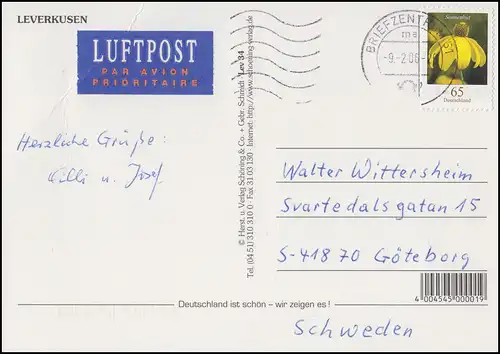 LEVERKUSEN
LUFTPOST
PAR AVION
PRIORITAIRE
BRIEFZENTRUM 51
-9.2.06
Sonnenhut
65
Deutschland
Herzliche Grüße:
u. Josef
© Herst. u. Verlag Schöning & Co. + Gebr. Schmidt · Lev 34
Tel. (04 51) 310 310 0 · Fax 31 03 130 · Internet: http://www.schoening-verlag.de
Walter Wittersheim
Svartedalsgatan 15
S-418 70 Göteborg
Schweden
4 004545 000019
Deutschland ist schön – wir zeigen es!